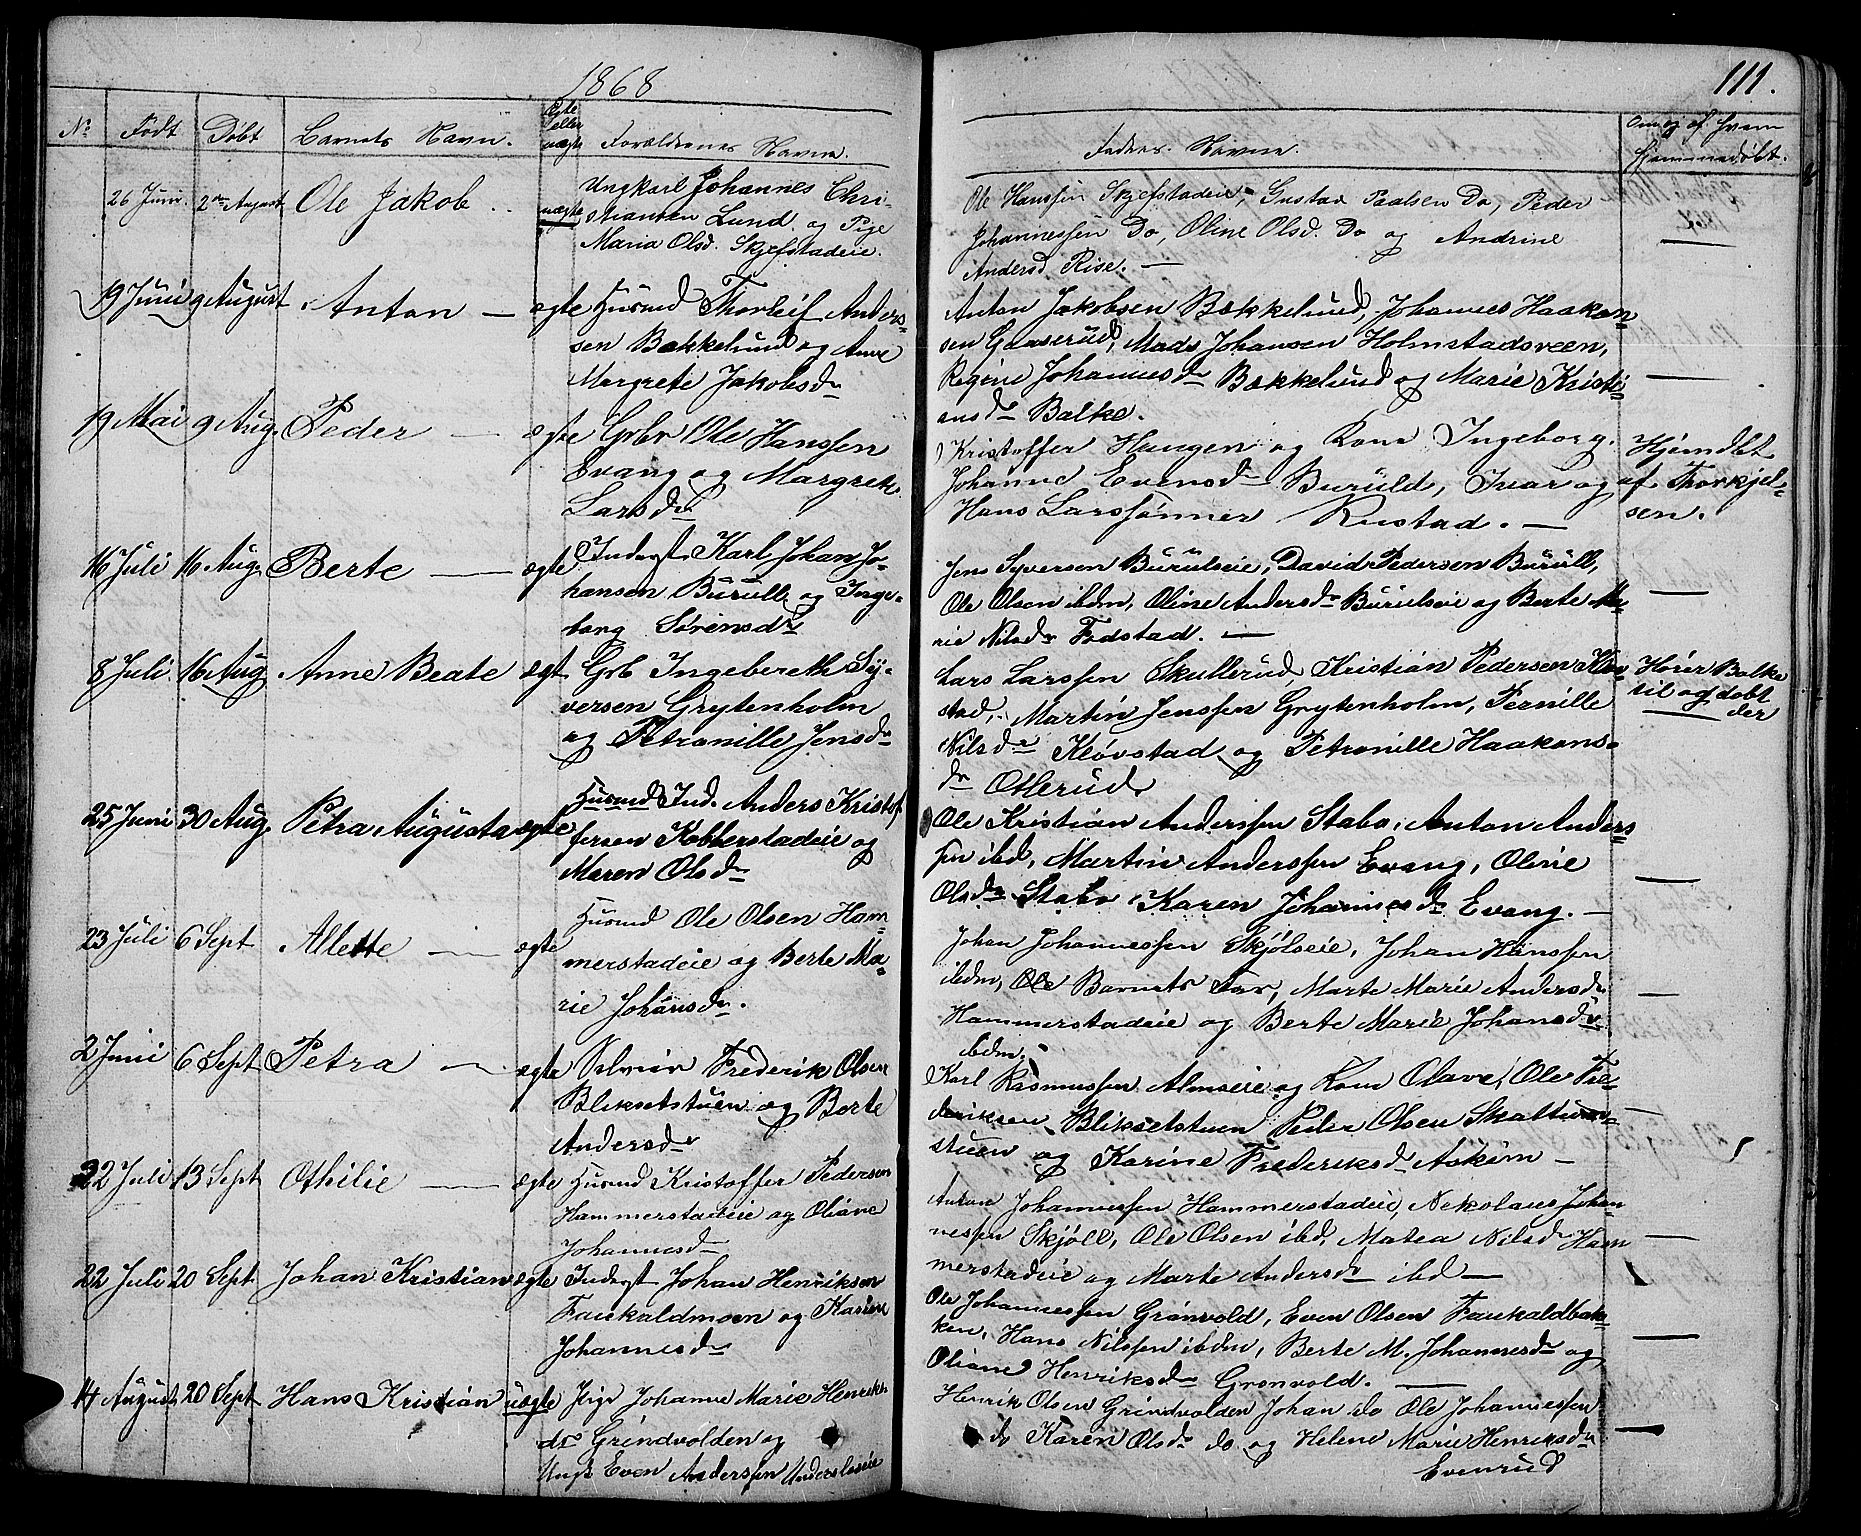 1868
111.
No Født Døbt Barnets Navn. Ægte eller uægte Forældrenes Navne.
Faddernes Navne. Om og af hvem hjemmedøbt.
26 Juni 2den August Ole Jakob uægte Ungkarl Johannes Chri-
stiansen Lund og Pige
Maria Olsd. Skjefstadeie.
Ole Hanssen Skjefstadeie, Gustav Paalsen Do, Peder
Johannessen Do, Oline Olsd. Do og Andrine
Andersd. Rise. —
19 Juni 9 August Anton — ægte Husmd Thorleif Anders-
sen Bækkelund og Anne
Margrete Jakobsdr
Anton Jakobsen Bækkelund, Johannes Haakon-
sen Gaaserud, Mads Johansen Holmstadsveen,
Regine Johannesdr Bækkelund og Marie Kristi-
ansdr Balke.
19 Mai 9 Aug. Peder — ægte Grbr Ole Hanssen
Evang og Margrete
Larsdr
Kristoffer Haugen og Kone Ingeborg.
Johanne Evensdr Buruld, Ivar og
Hans Larssønner Rustad. —
Hjemdbt
af Thorkjel-
sen.
16 Juli 16 Aug. Berte — ægte Inderst Karl Johan Jo-
hansen Burull og Inge-
borg Sørensdr
Jens Syversen Burulseie, David Pedersen Burull,
Ole Olsen ibdm, Oline Andersdr Burulseie og Berte Ma-
rie Nilsdr Fodstad. —
8 Juli 16 Aug Anne Beate ægt Grb Ingebereth Sy-
versen Grytenholm
og Petronille Jensdr
Lars Larssen Skullerud, Kristian Pedersen Kløv-
stad, Martin Jenssen Grytenholm, Pernille
Nilsdr Kløvstad og Petronille Haakons-
dr Otterud
Hører Balke
til og døbt
der
25 Juni 30 Aug. Petra Augusta ægte Husmd Ind. Anders Kristof
fersen Kobberstadeie og
Maren Olsdr
Ole Kristian Anderssen Stabo, Anton Anders-
sen ibd, Martin Anderssen Evang, Oline
Olsdr Stabo Karen Johannesdr Evang. —
23 Juli 6 Sept Allette — ægte Husmd Ole Olsen Ham
merstadeie og Berte Ma-
rie Johansdr.
Johan Johannessen Skjølseie, Johan Hanssen
ibdm, Ole Barnets Far, Marte Marie Andersdr
Hammerstadeie og Berte Marie Johansdr
ibdm.
2 Juni 6 Sept Petra — ægte Selveier Frederik Olsen
Bliksetstuen og Berte
Andersdr
Karl Rasmussen Almseie og Kone Olave, Ole Fre-
deriksen Bliksetstuen Peder Olsen Skattum-
stuen og Karine Frederiksd Askim —
22 Juli 13 Sept Othilie — ægte Husmd Kristoffer Pedersen
Hammerstadeie og Oliane
Johannesdr
Anton Johannessen Hammerstadeie, Nekolaus Johan-
nessen Skjøll, Ole Olsen ibd, Matea Nilsdr Ham
merstadeie og Marte Andersdr ibd —
22 Juli 20 Sept Johan Kristian ægte Inderst Johan Henriksen
Faukaldmoen og Karine
Johannesdr
Ole Johannessen Grønvold, Even Olsen Faukaldbak-
ken, Hans Nilssen ibdm, Berte M. Johannesdr og
Oliane Henriksdr Gronvold. —
14 August 20 Sept Hans Kristian uægte Pige Johanne Marie Henriks
dr Grindvolden og
Ungk Even Anderssen
Henrik Olsen Grindvolden Johan do Ole Johannessen
do Karen Olsdr do og Helene Marie Henriksdr
Evenrud